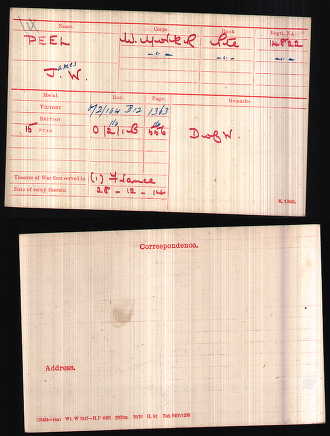 Name. Corps. Rank. Regtl. No.
PEEL W. York R Pte 14822
James
J. W.
Medal. Roll. Page. Remarks.
VICTORY O/2/104 B12 1363
BRITISH
15 STAR O/2/1 B D of W.
Theatre of War first served in (1) France
Date of entry therein 28 - 12 - 14
K. 1380.
Correspondence.
Address.